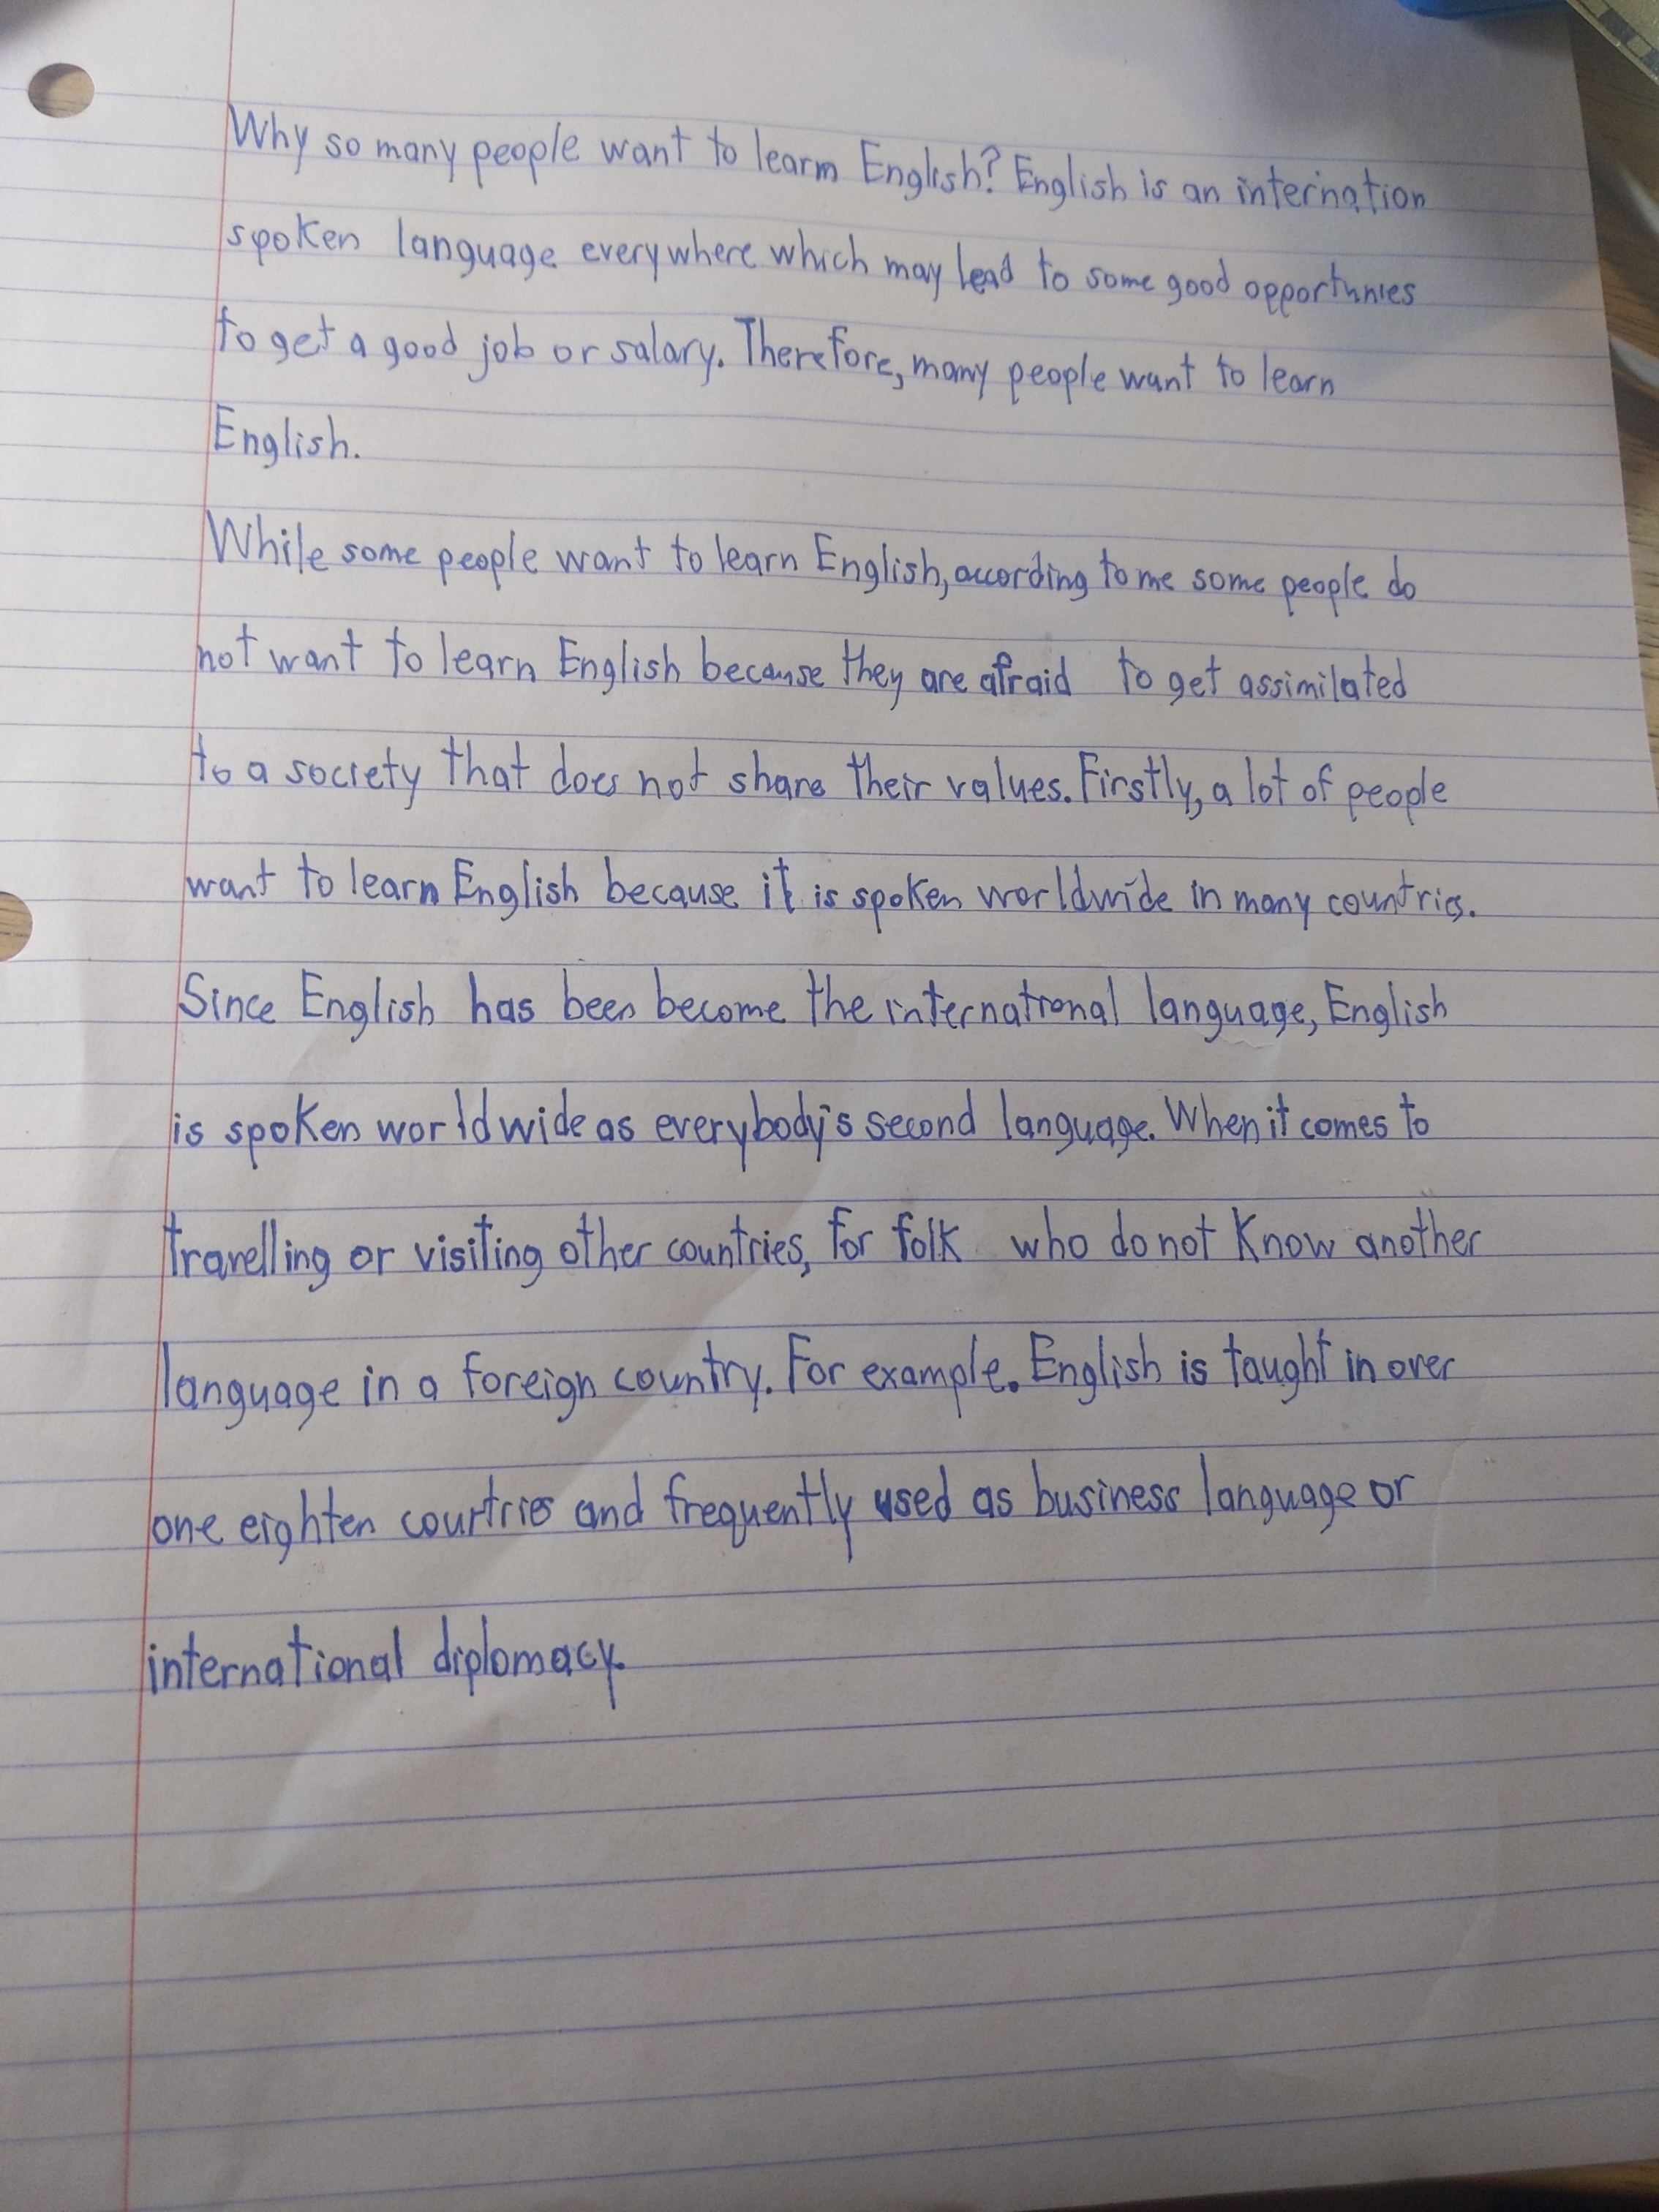 Why so many people want to learm English? English is an internation
spoken language everywhere which may lead to some good opportunies
to get a good job or salary. Therefore, many people want to learn
English.
While some people want to learn English, according to me some people do
not want to learn English because they are afraid to get assimilated
to a society that does not share their values. Firstly, a lot of people
want to learn English because it is spoken worldwide in many countries.
Since English has been become the international language, English
is spoken worldwide as everybody's second language. When it comes to
travelling or visiting other countries, for folk who do not know another
language in a foreign country. For example. English is taught in over
one eighten courtries and frequently used as business language or
international diplomacy.